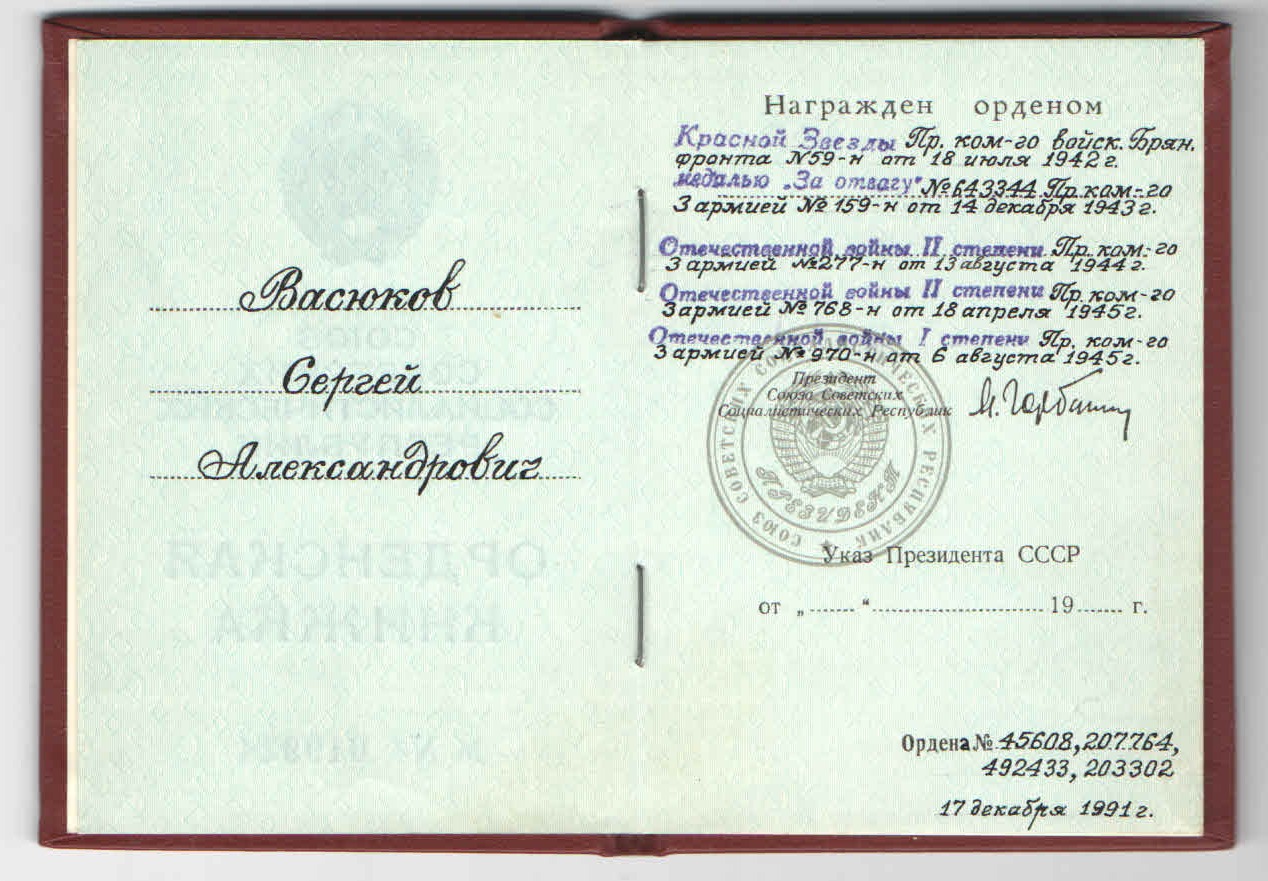 Васюков
Сергей
Александрович
Награжден орденом
Красной Звезды Пр. ком-го войск. Брян.
фронта №59-н от 18 июля 1942 г.
медалью „За отвагу" №643344 Пр. ком-го
3 армией № 159-н от 14 декабря 1943 г.
Отечественной войны II степени Пр. ком-го
3 армией №277-н от 13 августа 1944 г.
Отечественной войны II степени Пр. ком-го
3 армией № 768-н от 18 апреля 1945 г.
Отечественной войны I степени Пр. ком-го
3 армией № 970-н от 6 августа 1945 г.
Президент
Союза Советских
Социалистических Республик
М. Горбачев
СОЮЗ СОВЕТСКИХ СОЦИАЛИСТИЧЕСКИХ РЕСПУБЛИК
ПРЕЗИДЕНТ
Указ Президента СССР
от „ “ 19 г.
Ордена № 45608, 207764,
492433, 203302
17 декабря 1991 г.
СОЮЗ
СОВЕТСКИХ
СОЦИАЛИСТИЧЕСКИХ
РЕСПУБЛИК
ОРДЕНСКАЯ
КНИЖКА